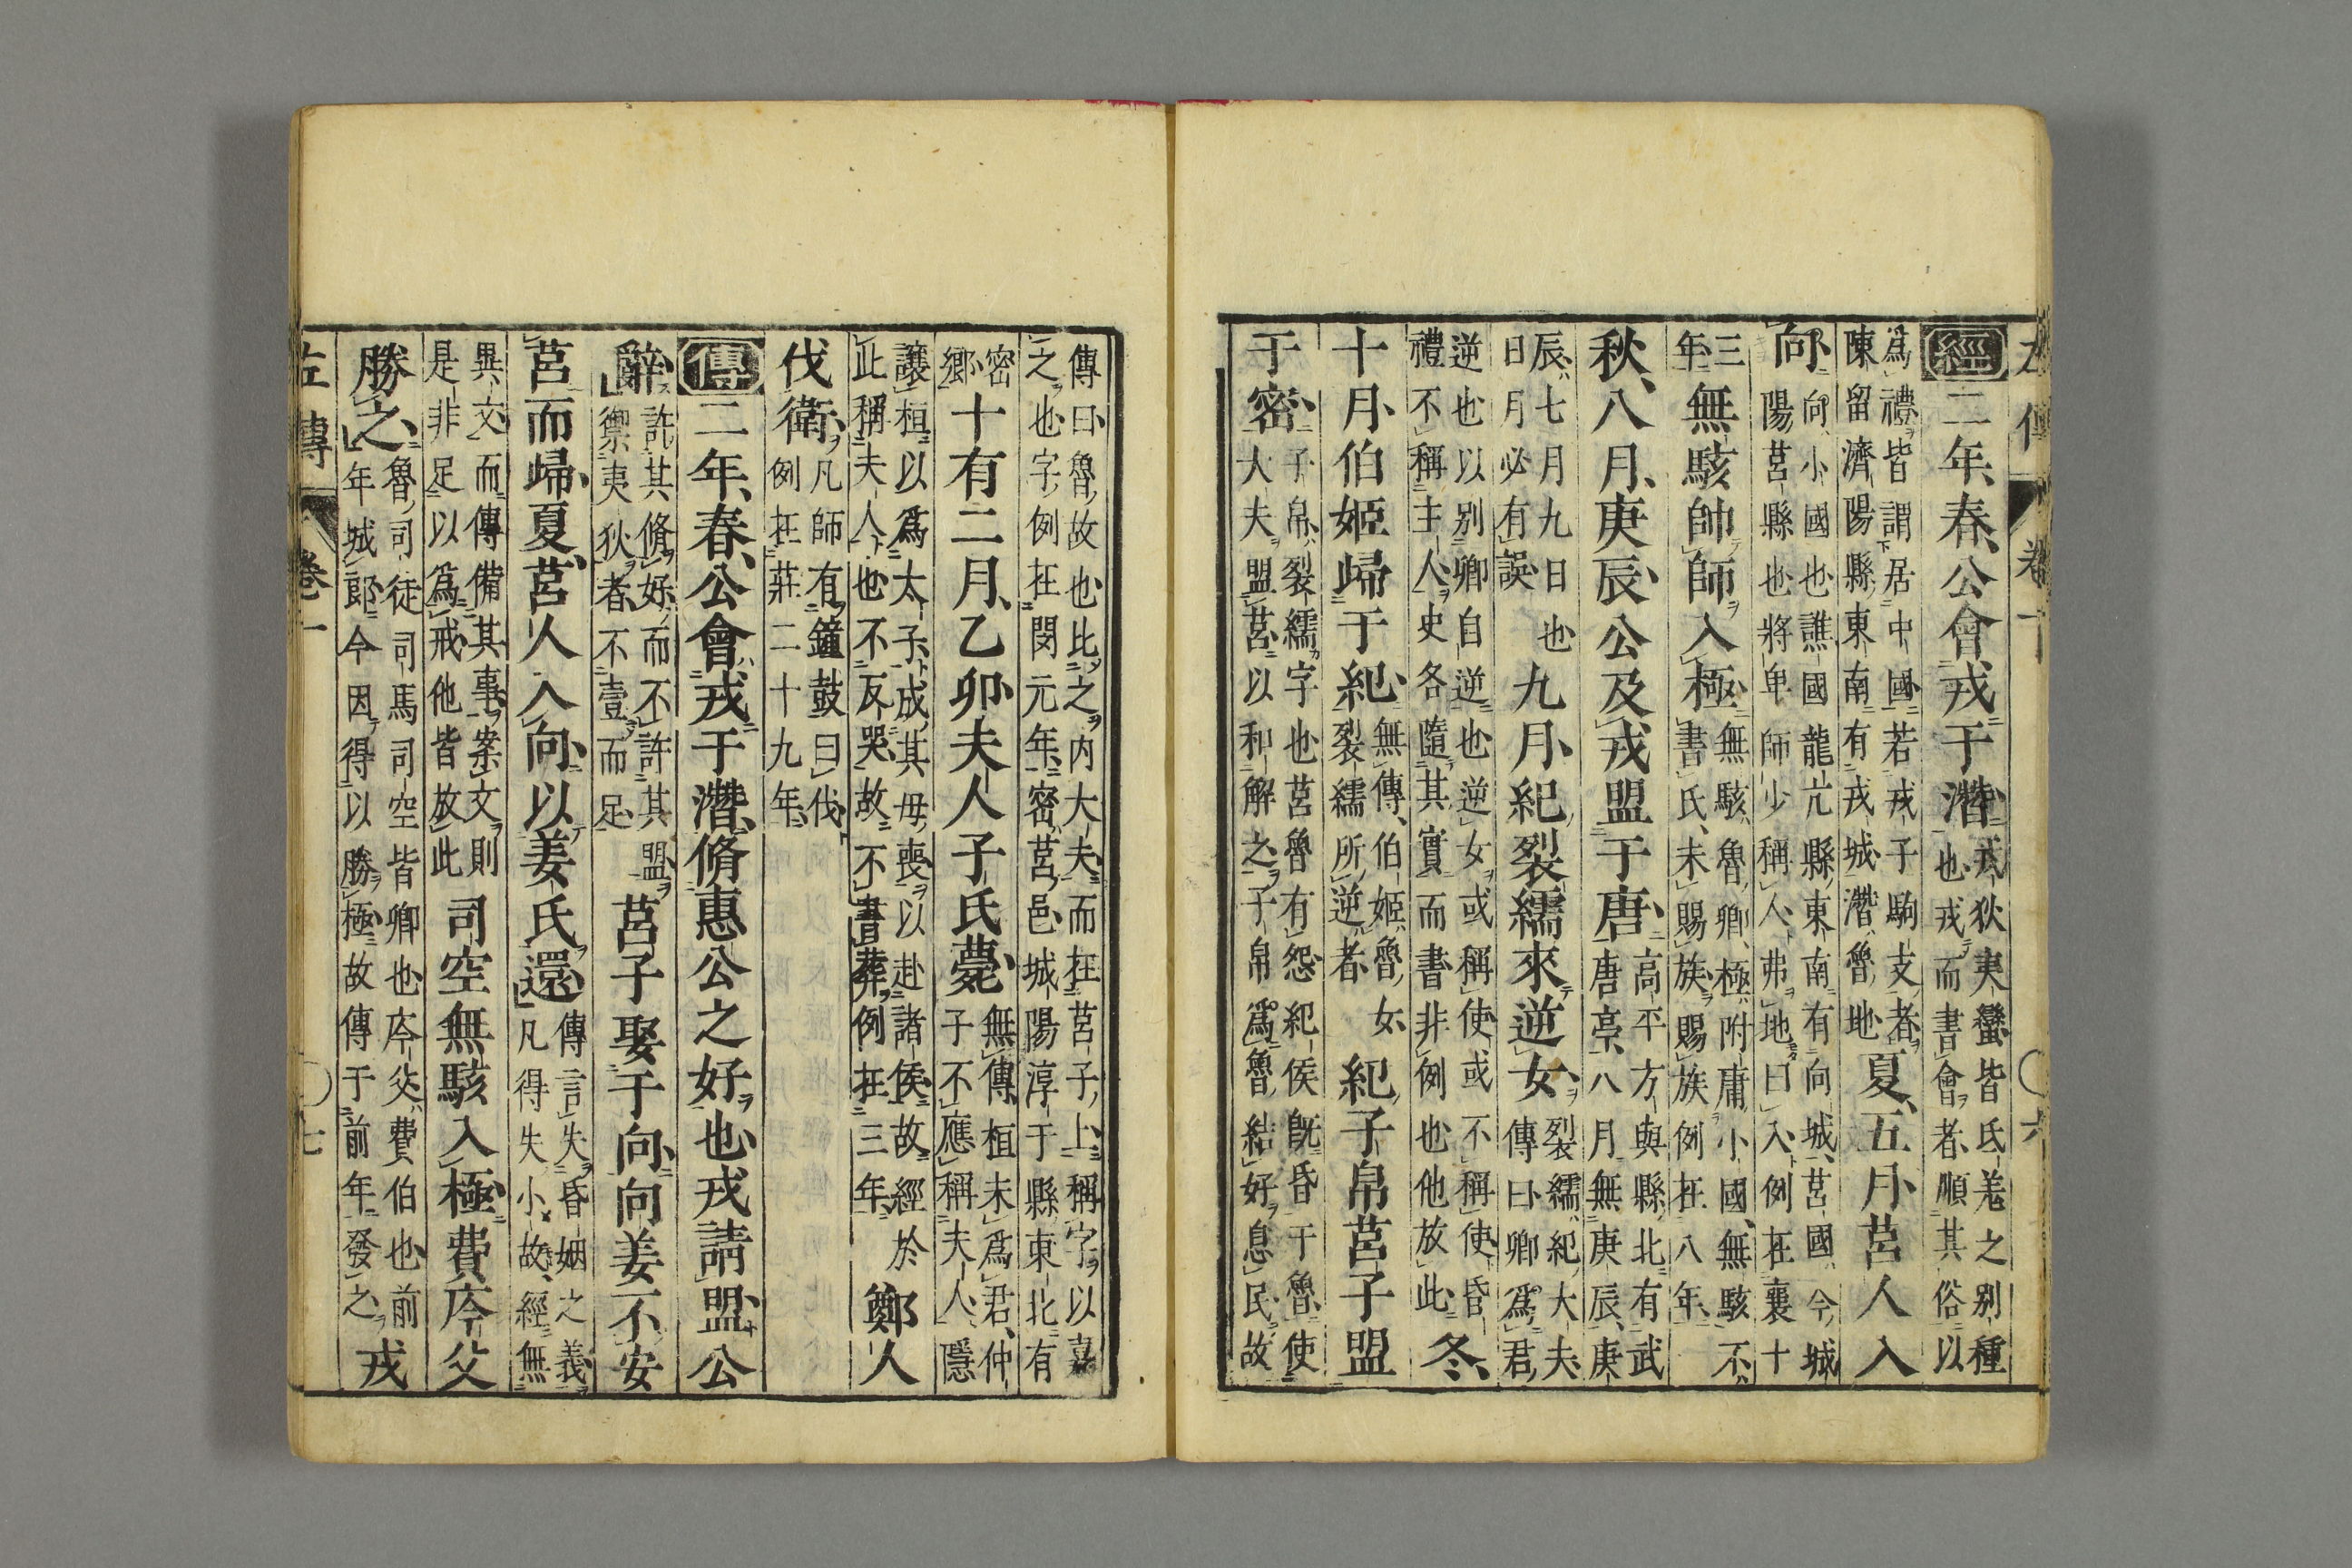 左傳 卷一 〇六
經二年春公會戎于潛戎狄夷蠻皆氐羌之别種也戎而書會者順其俗以
爲禮皆謂居中國若戎子駒支者陳留濟陽縣東南有戎城潛魯地夏五月莒人入
向向小國也譙國龍亢縣東南有向城莒國今城陽莒縣也將卑師少稱人弗地曰入例在襄十
三年無駭帥師入極無駭魯卿極附庸小國無駭不書氏未賜族賜族例在八年
秋八月庚辰公及戎盟于唐高平方與縣北有武唐亭八月無庚辰庚
辰七月九日也日月必有誤九月紀裂繻來逆女裂繻紀大夫傳曰卿爲君
逆也以别卿自逆也逆女或稱使或不稱使昏禮不稱主人史各隨其實而書非例也他放此冬
十月伯姬歸于紀無傳伯姬魯女裂繻所逆者紀子帛莒子盟
于密子帛裂繻字也莒魯有怨紀侯旣昏于魯使大夫盟莒以和解之子帛爲魯結好息民故
傳曰魯故也比之内大夫而在莒子上稱字以嘉之也字例在閔元年密莒邑城陽淳于縣東北有
密鄉十有二月乙卯夫人子氏薨無傳桓未爲君仲子不應稱夫人隱
讓桓以爲太子成其母喪以赴諸侯故經於此稱夫人也不反哭故不書葬例在三年鄭人
伐衛凡師有鐘鼓曰伐例在莊二十九年
傳二年春公會戎于潛脩惠公之好也戎請盟公
辭許其脩好而不許其盟禦夷狄者不壹而足莒子娶于向向姜不安
莒而歸夏莒人入向以姜氏還傳言失昏姻之義凡得失小故經無
異文而傳備其事案文則是非足以爲戒他皆放此司空無駭入極費庈父
勝之魯司徒司馬司空皆卿也庈父費伯也前年城郎今因得以勝極故傳于前年發之戎
左傳 卷一 〇七